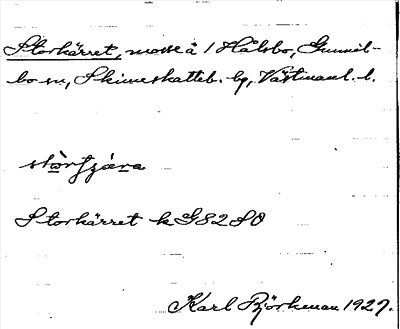 Storkärret, mosse å 1 Hålsbo, Gunnil-
bo sn, Skinnskatteb. bg, Västmanl. l.
Storkärret k G8280
Karl Björkman 1927.